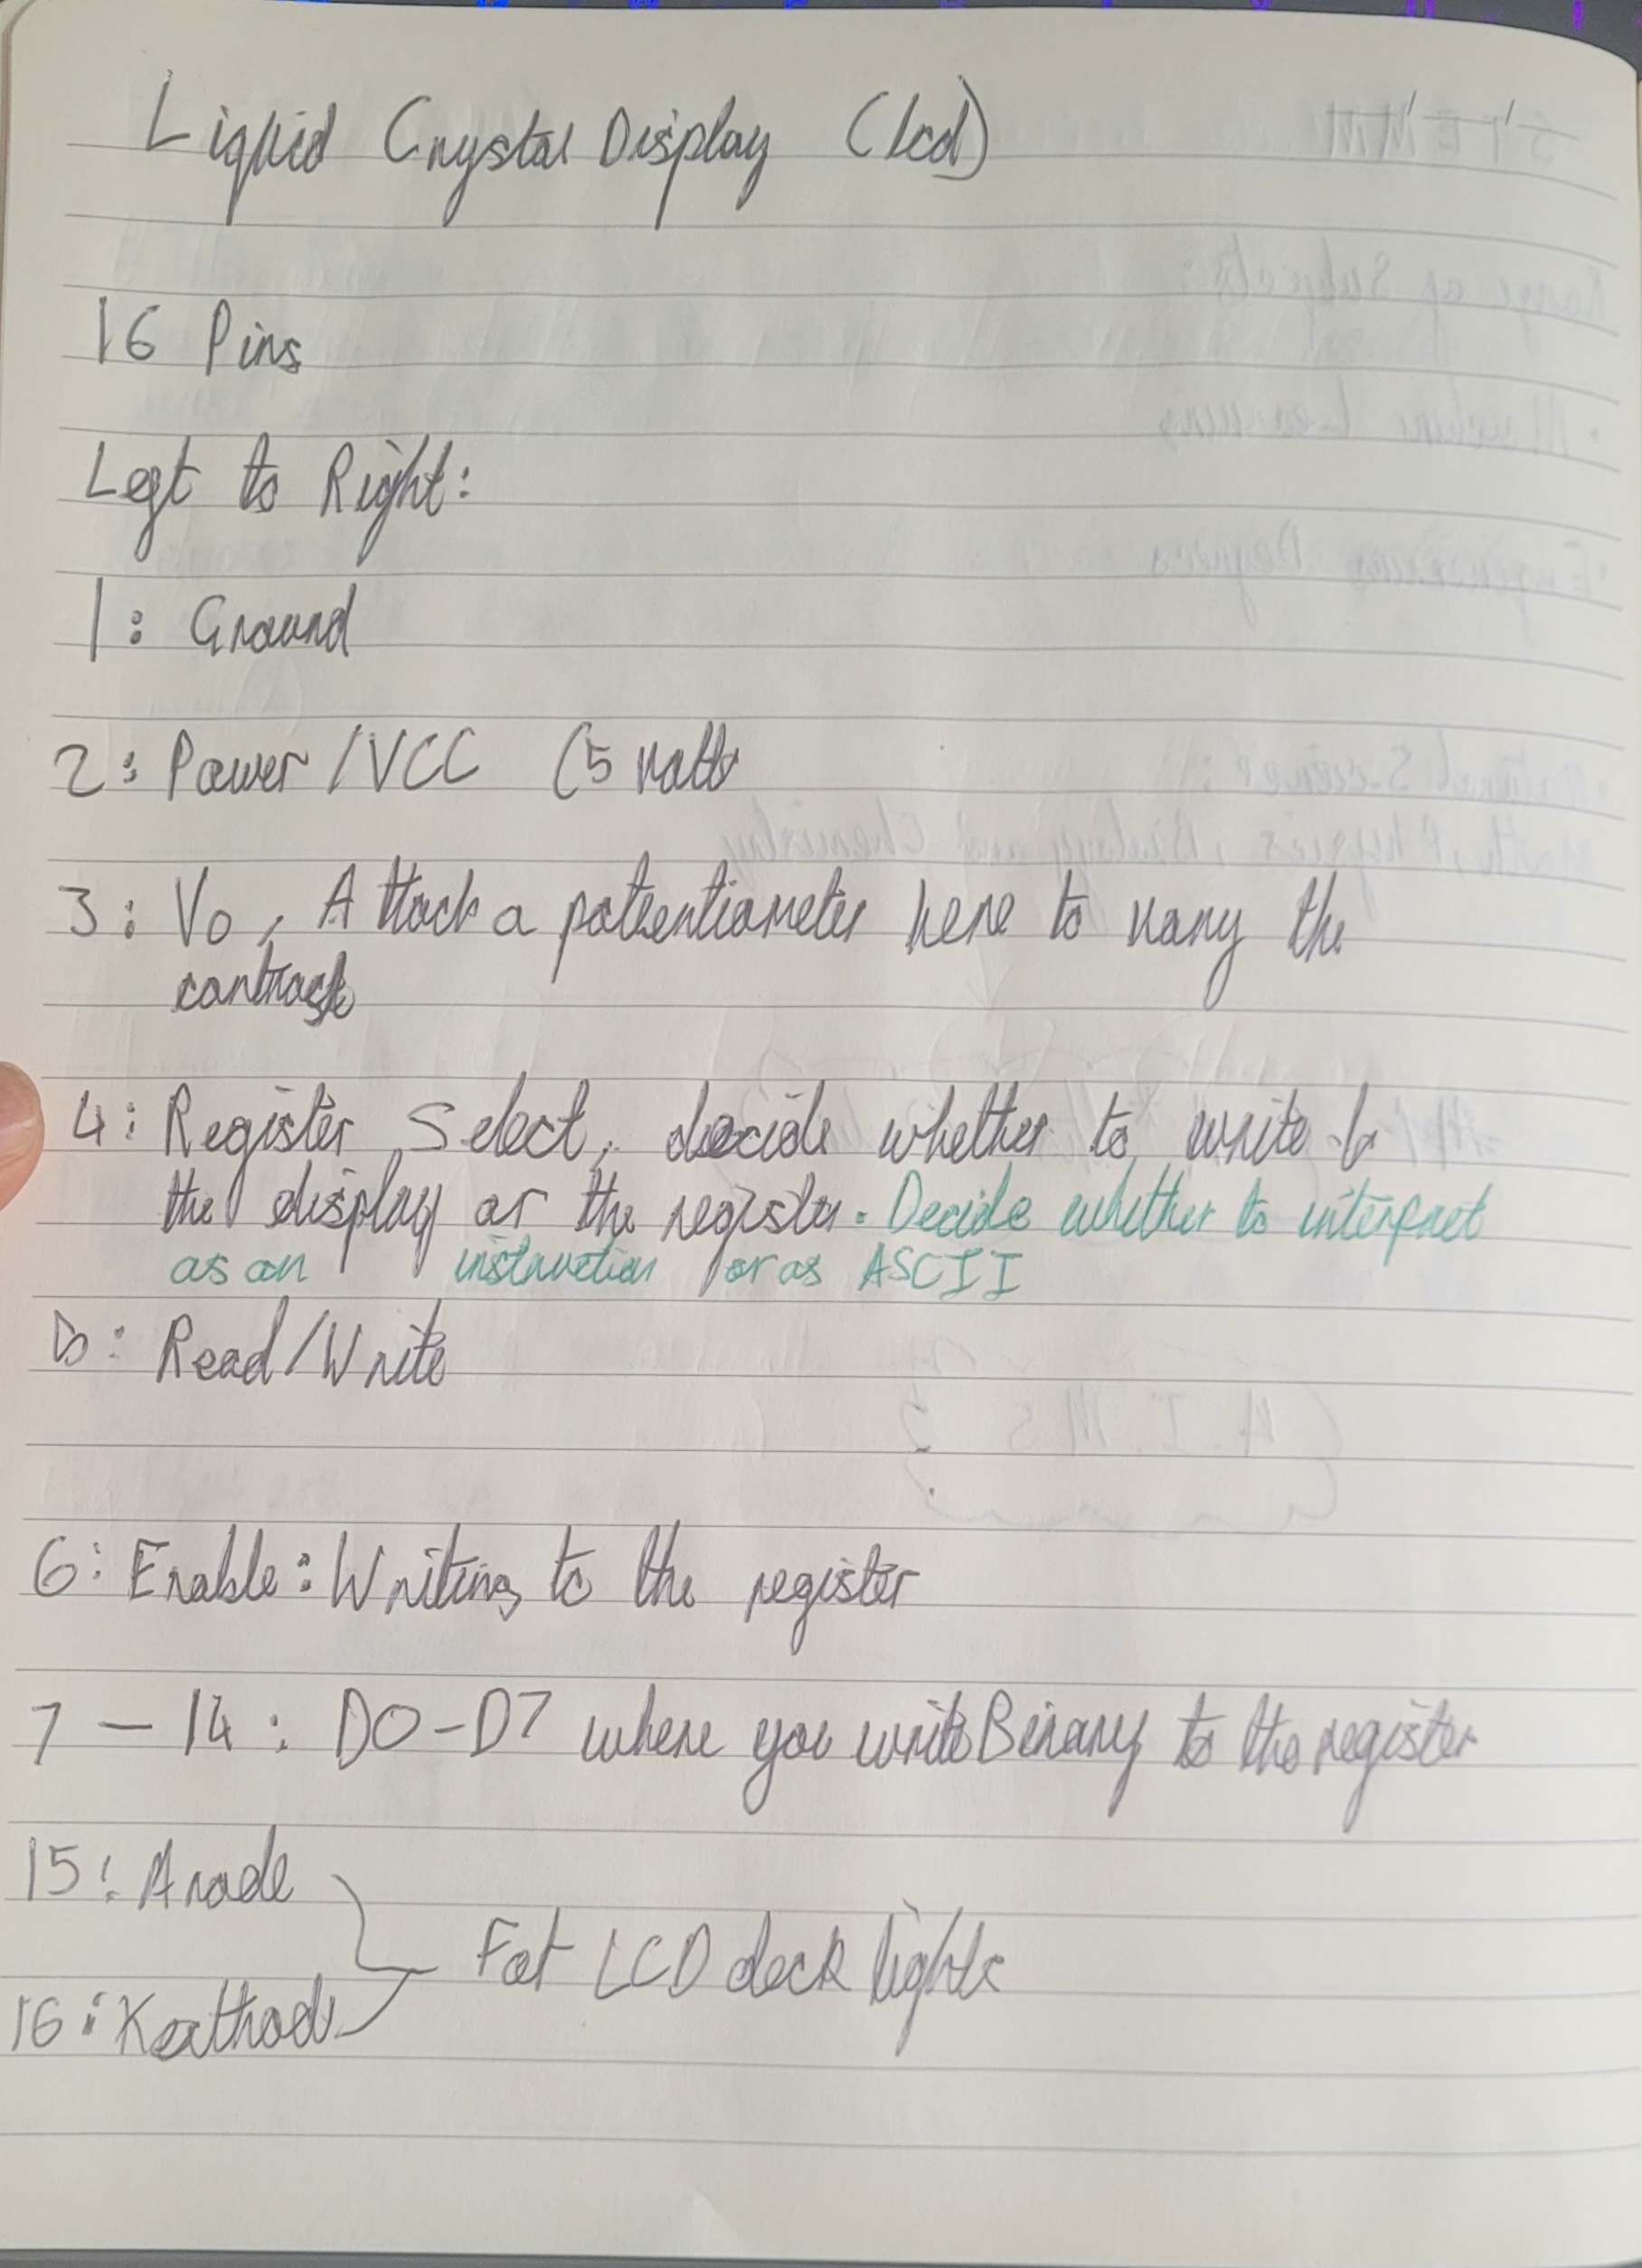 Liquid Crystal Display (lcd)
16 Pins
Left to Right:
1: Ground
2: Power/VCC (5 Volts
3: Vo, Attach a potentiometer here to vary the
contrast
4: Register Select, decide whether to write to
the display or the register. Decide whether to interpret
as an instruction or as ASCII
5: Read/Write
6: Enable: Writing to the register
7-14: D0-D7 where you write Binary to the register
15: Anode
For LCD back lights
16: Kathode